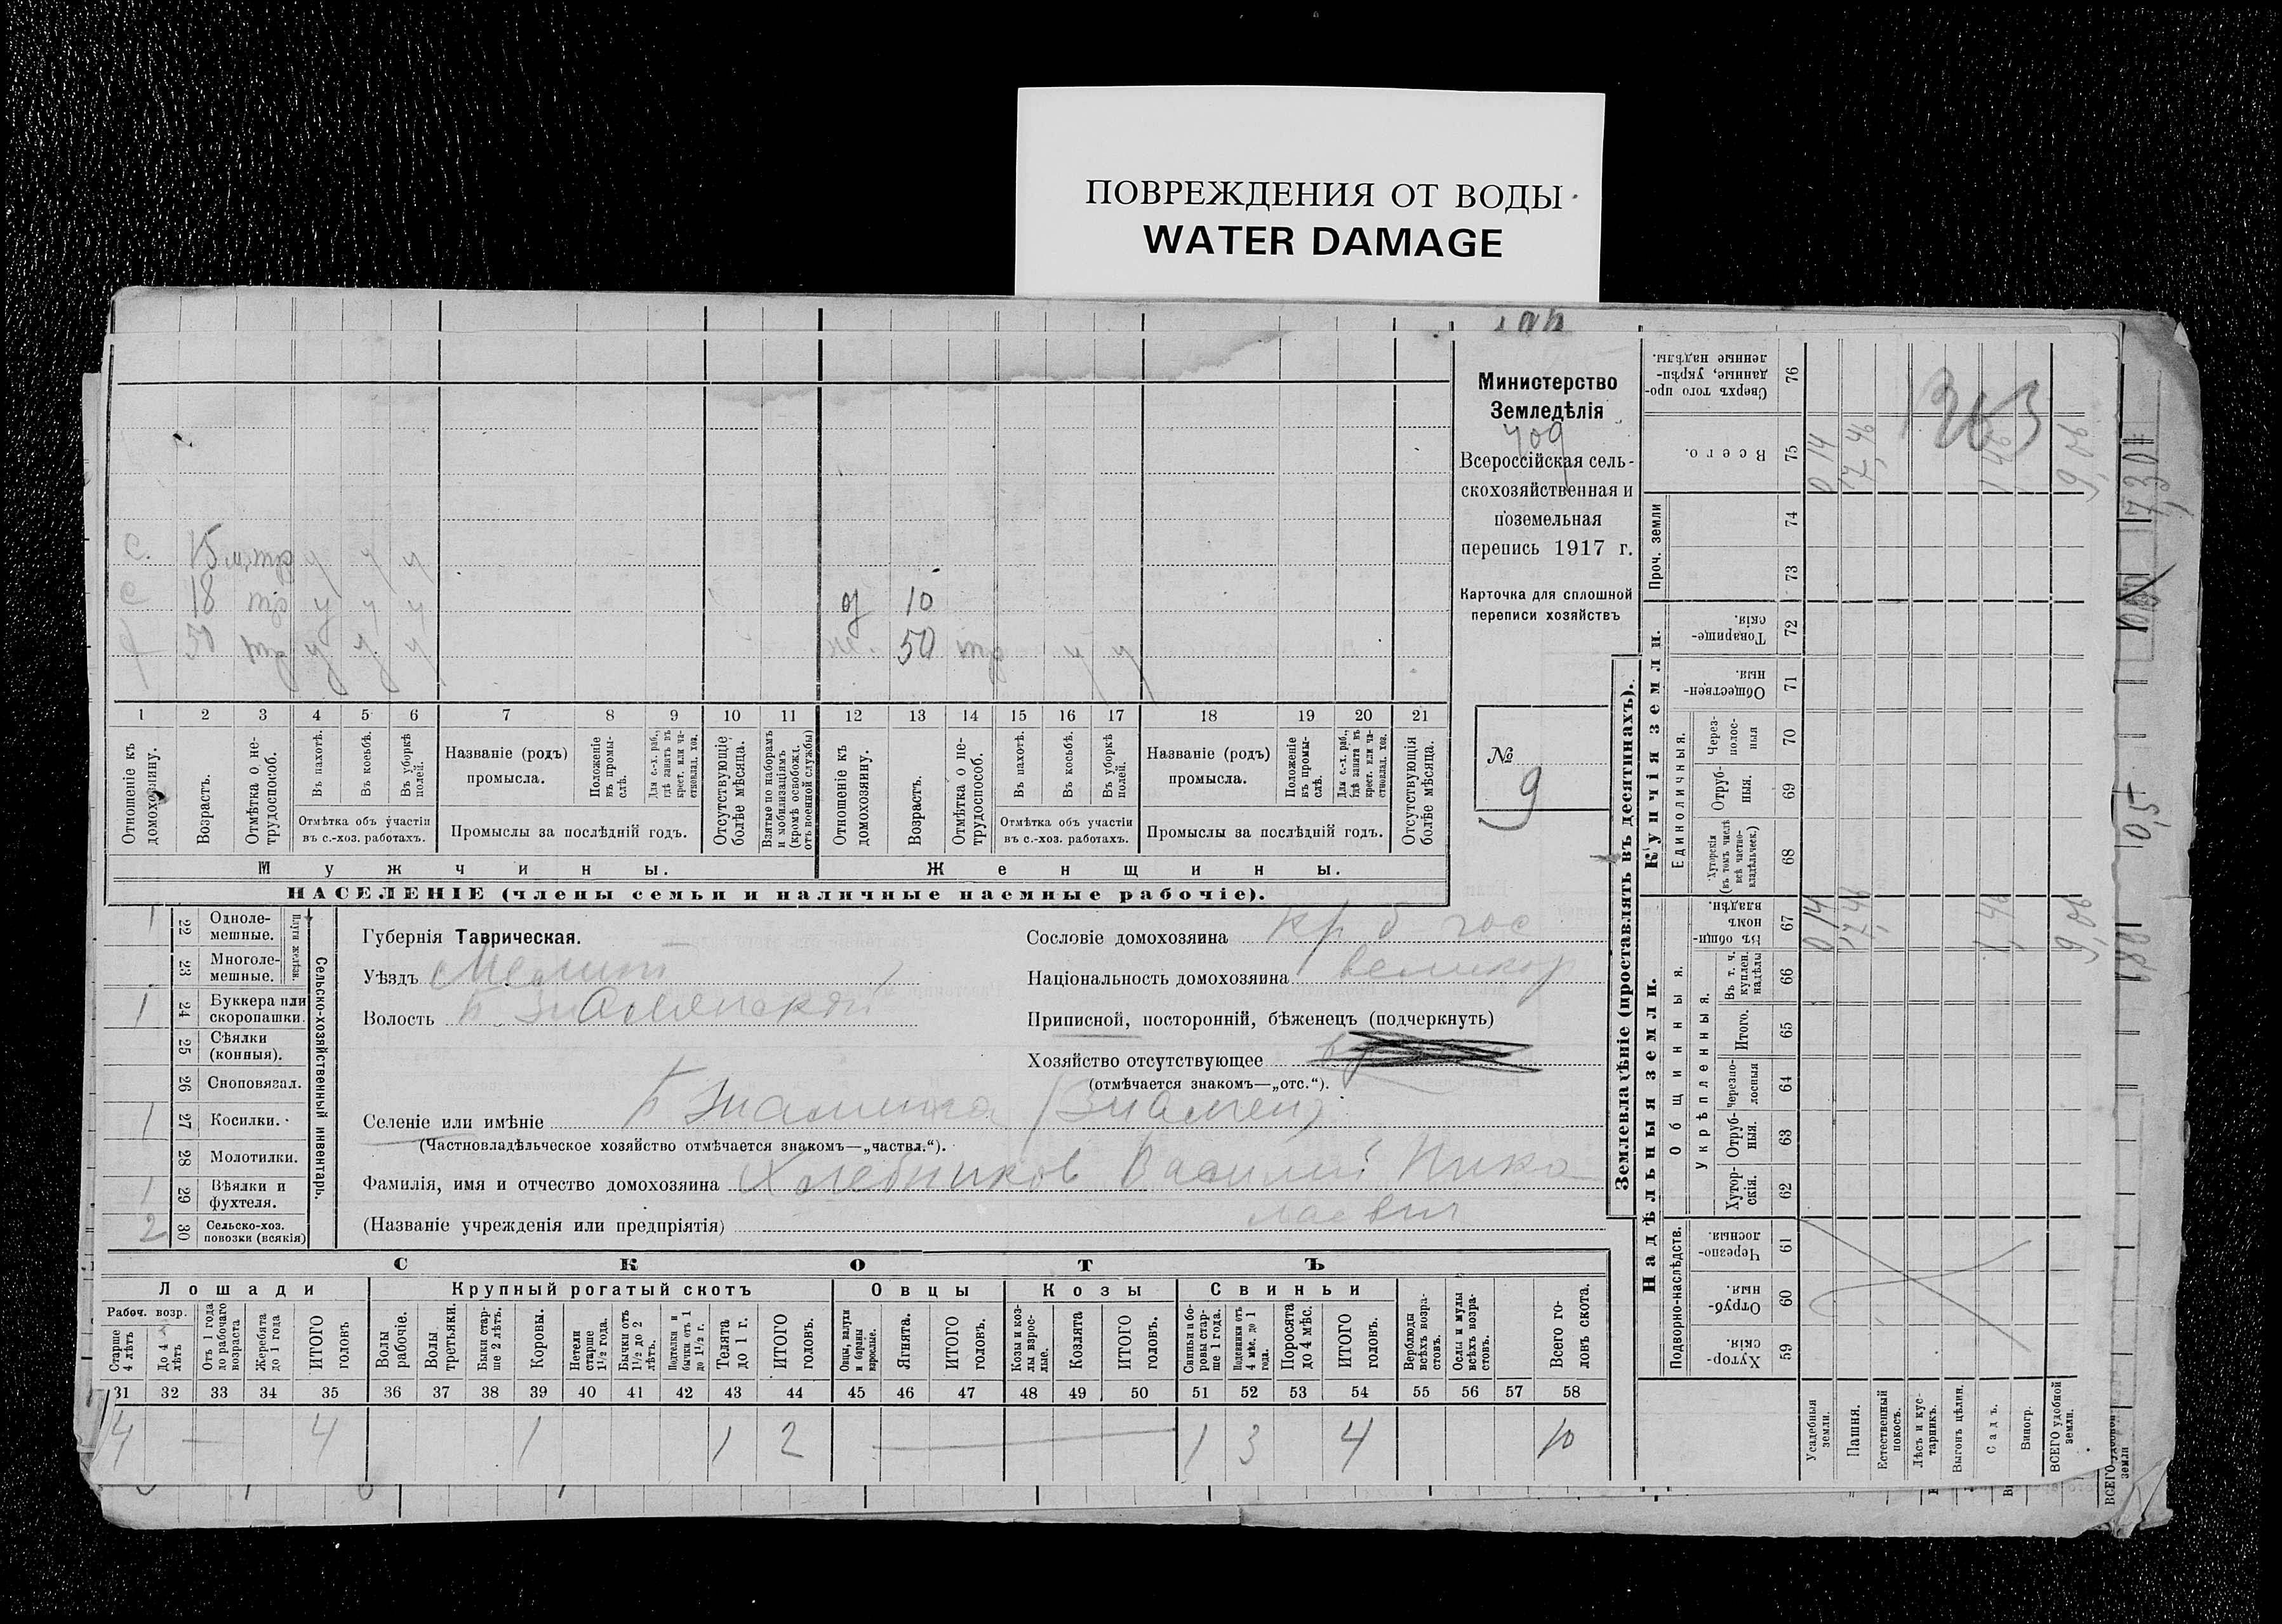 ПОВРЕЖДЕНИЯ ОТ ВОДЫ
WATER DAMAGE
Министерство
Земледѣлія
709
Всероссійская сель-
скохозяйственная и
поземельная
перепись 1917 г.
Карточка для сплошной
переписи хозяйствъ
№
9
с. 15 у у у
с 18 тр у у у
50 тр у у у
10
50 тр у у
1 2 3 4 5 6 7 8 9 10 11 12 13 14 15 16 17 18 19 20 21
Отношеніе къ домохозяину.
Возрастъ.
Отмѣтка о не-трудоспособ.
Въ пахотѣ.
Въ косьбѣ.
Въ уборкѣ полей.
Отмѣтка объ участіи
въ с.-хоз. работахъ.
Названіе (родъ)
промысла.
Положеніе въ промы-слѣ.
Для с.-х. раб., гдѣ занятъ въ крест. или ча-стновлад. хоз.
Промыслы за послѣдній годъ.
Отсутствующіе болѣе мѣсяца.
Взятые по наборамъ и мобилизаціямъ (кромѣ освобожд. отъ военной службы)
Отношеніе къ домохозяину.
Возрастъ.
Отмѣтка о не-трудоспособ.
Въ пахотѣ.
Въ косьбѣ.
Въ уборкѣ полей.
Отмѣтка объ участіи
въ с.-хоз. работахъ.
Названіе (родъ)
промысла.
Положеніе въ промы-слѣ.
Для с.-х. раб., гдѣ занята въ крест. или ча-стновлад. хоз.
Промыслы за послѣдній годъ.
Отсутствующія болѣе мѣсяца.
Мужчины.
Женщины.
НАСЕЛЕНІЕ (члены семьи и наличные наемные рабочіе).
Сельско-хозяйственный инвентарь.
Плуги желѣзн.
1 22 Одноле-мешные.
23 Многоле-мешные.
1 24 Буккера или скоропашки.
25 Сѣялки (конныя).
26 Сноповязал.
1 27 Косилки.
28 Молотилки.
1 29 Вѣялки и фухтеля.
2 30 Сельско-хоз. повозки (всякія)
Губернія Таврическая.
Уѣздъ Мелит
Волость Б Знаменской
Сословіе домохозяина кр б гос
Національность домохозяина великор
Приписной, посторонній, бѣженецъ (подчеркнуть)
Хозяйство отсутствующее
(отмѣчается знакомъ—„отс.“).
Селеніе или имѣніе Б Знаменка (Знамен)
(Частновладѣльческое хозяйство отмѣчается знакомъ—„частвл.“).
Фамилія, имя и отчество домохозяина Хлебников Василий Нико
лаевич
(Названіе учрежденія или предпріятія)
СКОТЪ
Лошади
Крупный рогатый скотъ
Овцы
Козы
Свиньи
Рабоч. возр.
Старше 4 лѣтъ
До 4 лѣтъ
Отъ 1 года до рабочаго возраста
Жеребята до 1 года
ИТОГО головъ
Волы рабочіе.
Волы третьяки.
Быки стар-ше 2 лѣтъ.
Коровы.
Нетели старше 1½ года.
Бычки отъ 1½ до 2 лѣтъ.
Подтелки и бычки отъ 1 до 1½ г.
Телята до 1 г.
ИТОГО головъ.
Овцы, валухи и бараны взрослые.
Ягнята.
ИТОГО головъ.
Козы и коз-лы взрос-лые.
Козлята
ИТОГО головъ.
Свиньи и бо-ровы стар-ше 1 года.
Подсвинки отъ 4 мѣс. до 1 года.
Поросята до 4 мѣс.
ИТОГО головъ.
Верблюды всѣхъ возра-стовъ.
Ослы и мулы всѣхъ возра-стовъ.
Всего го-ловъ скота.
31 32 33 34 35 36 37 38 39 40 41 42 43 44 45 46 47 48 49 50 51 52 53 54 55 56 57 58
4 — 4 1 1 2 — 1 3 4 10
Землевладѣніе (проставлять въ десятинахъ).
Надѣльныя земли.
Купчія земли.
Проч. земли
Подворно-наслѣдств.
Общинныя.
Укрѣпленныя.
Единоличныя.
59 Хутор-скія.
60 Отруб-ныя.
61 Черезпо-лосныя.
62 Хутор-скія.
63 Отруб-ныя.
64 Черезпо-лосныя
65 Итого.
66 Въ т. ч. куплен. надѣлы
67 Въ общин-номъ владѣн.
68 Хуторскія (въ томъ числѣ всѣ частно-владѣльческ.)
69 Отруб-ныя.
70 Через-полос-ныя
71 Обществен-ныя.
72 Товарище-скія.
73
74
75 Всего.
76 Сверхъ того про-данные, укрѣп-ленные надѣлы.
Усадебныя земли. 0 14 0 14
Пашня. 17,46 17,46
Естественный покосъ.
Лѣсъ и кус-тарникъ.
Выгонъ цѣлин.
Садъ. 1,46 1,46
Виногр.
ВСЕГО удобной земли. 9,06 9,06
1363
ВСЕГО удобной земли